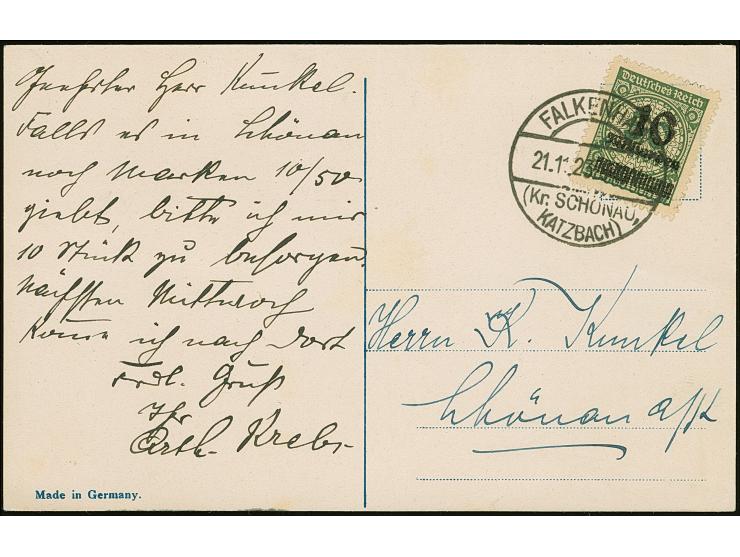 Geehrter Herr Kunkel.
Falls es in Schönau
noch Marken 10/50
giebt, bitte ich mir
10 Stück zu besorgen.
Nächsten Mittwoch
komme ich nach dort
Frdl. Gruß
Ihr
Arth. Krebs
Made in Germany.
Deutsches Reich
10
FALKENH
21.11.23
(Kr. SCHÖNAU,
KATZBACH)
Herrn K. Kunkel
Schönau a/K